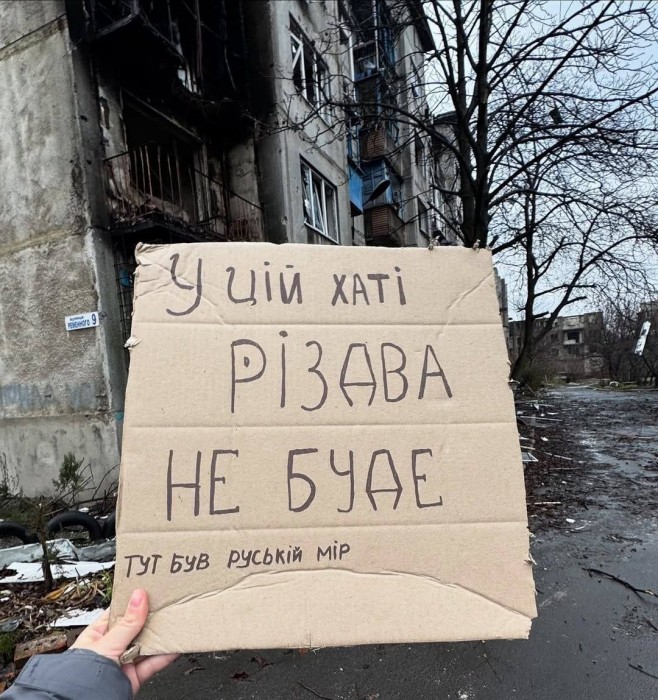 У ЦІЙ ХАТІ
РІЗДВА
НЕ БУДЕ
ТУТ БУВ РУСЬКІЙ МІР
9